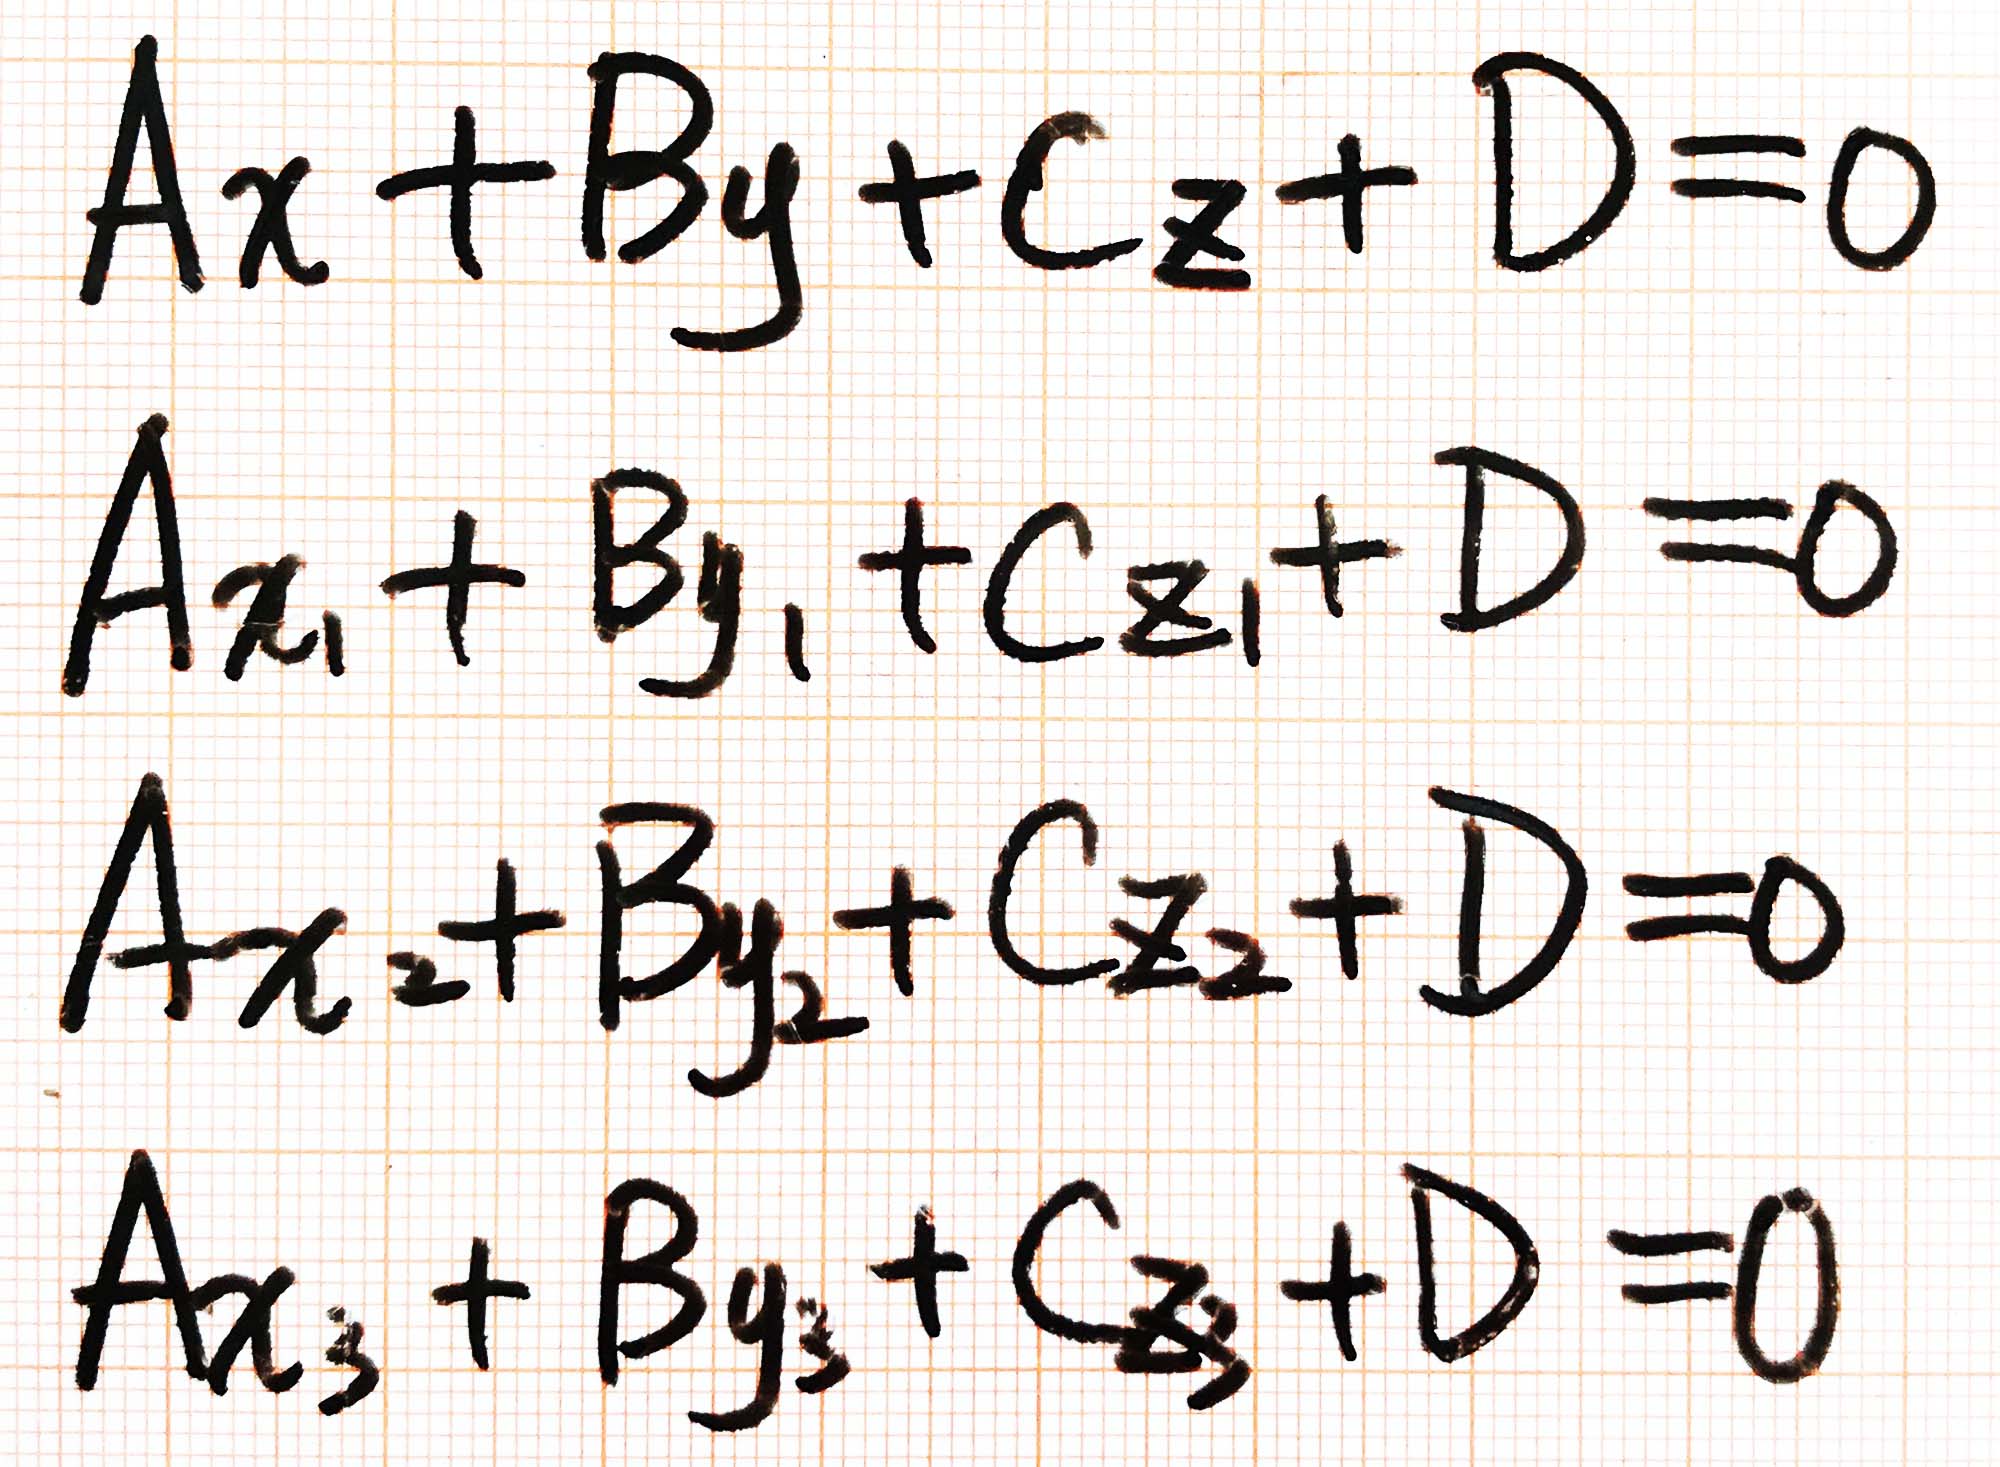 Ax + By + Cz + D = 0
Ax₁ + By₁ + Cz₁ + D = 0
Ax₂ + By₂ + Cz₂ + D = 0
Ax₃ + By₃ + Cz₃ + D = 0